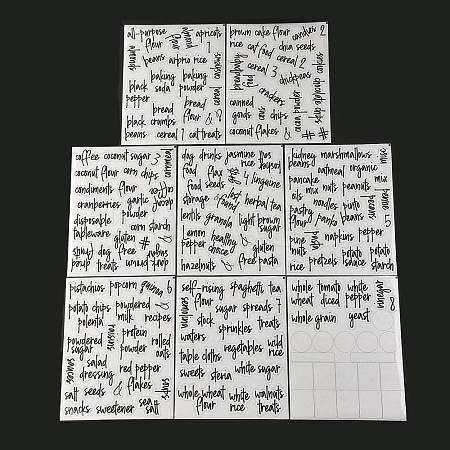 all-purpose almond apricots
flour flour 1
almonds beans arprio rice
baking baking cashews
black soda powder
pepper bread cereal
black crumbs flour
beans cereal 1 cat treats
brown cake flour candies 2
rice cat food chia seeds
cereal 2
food cereal 3 chickpeas
crackers
canned
goods cous chips
cous cocoa powder
coconut flakes & #
coffee coconut sugar 3 cornmeal
coconut flour corn chips
condiments flour coffee
cranberries garlic
powder
disposable corn starch
tableware gluten #
dog free &
treats
dog drinks jasmine
food flax rice
food seeds 4 linguine
storage herbal tea
lentils granola light brown
lemon healthy sugar
pepper choice gluten
hazelnuts & free pasta
kidney marshmallows misc
beans oatmeal organic
pancake mix nuts peanuts
mix
oils noodles pinto
pastry beans
flour panko 5
pine napkins pepper
nuts potato potato
rice pretzels sauce starch
pistachios popcorn quinoa 6
potato chips powdered
polenta milk
raisins protein
powdered powder rolled
sugar oats
salad red pepper
sauces dressing & flakes
salt seeds sea soups
snacks sweetener salt
self-rising spaghetti tea
flour sugar spreads 7
stock sprinkles treats
waters
vegetables wild
table cloths rice
sweets stevia white sugar
whole wheat white walnuts
flour rice treats
whole tomato white vinegar
wheat diced pepper 8
whole grain yeast